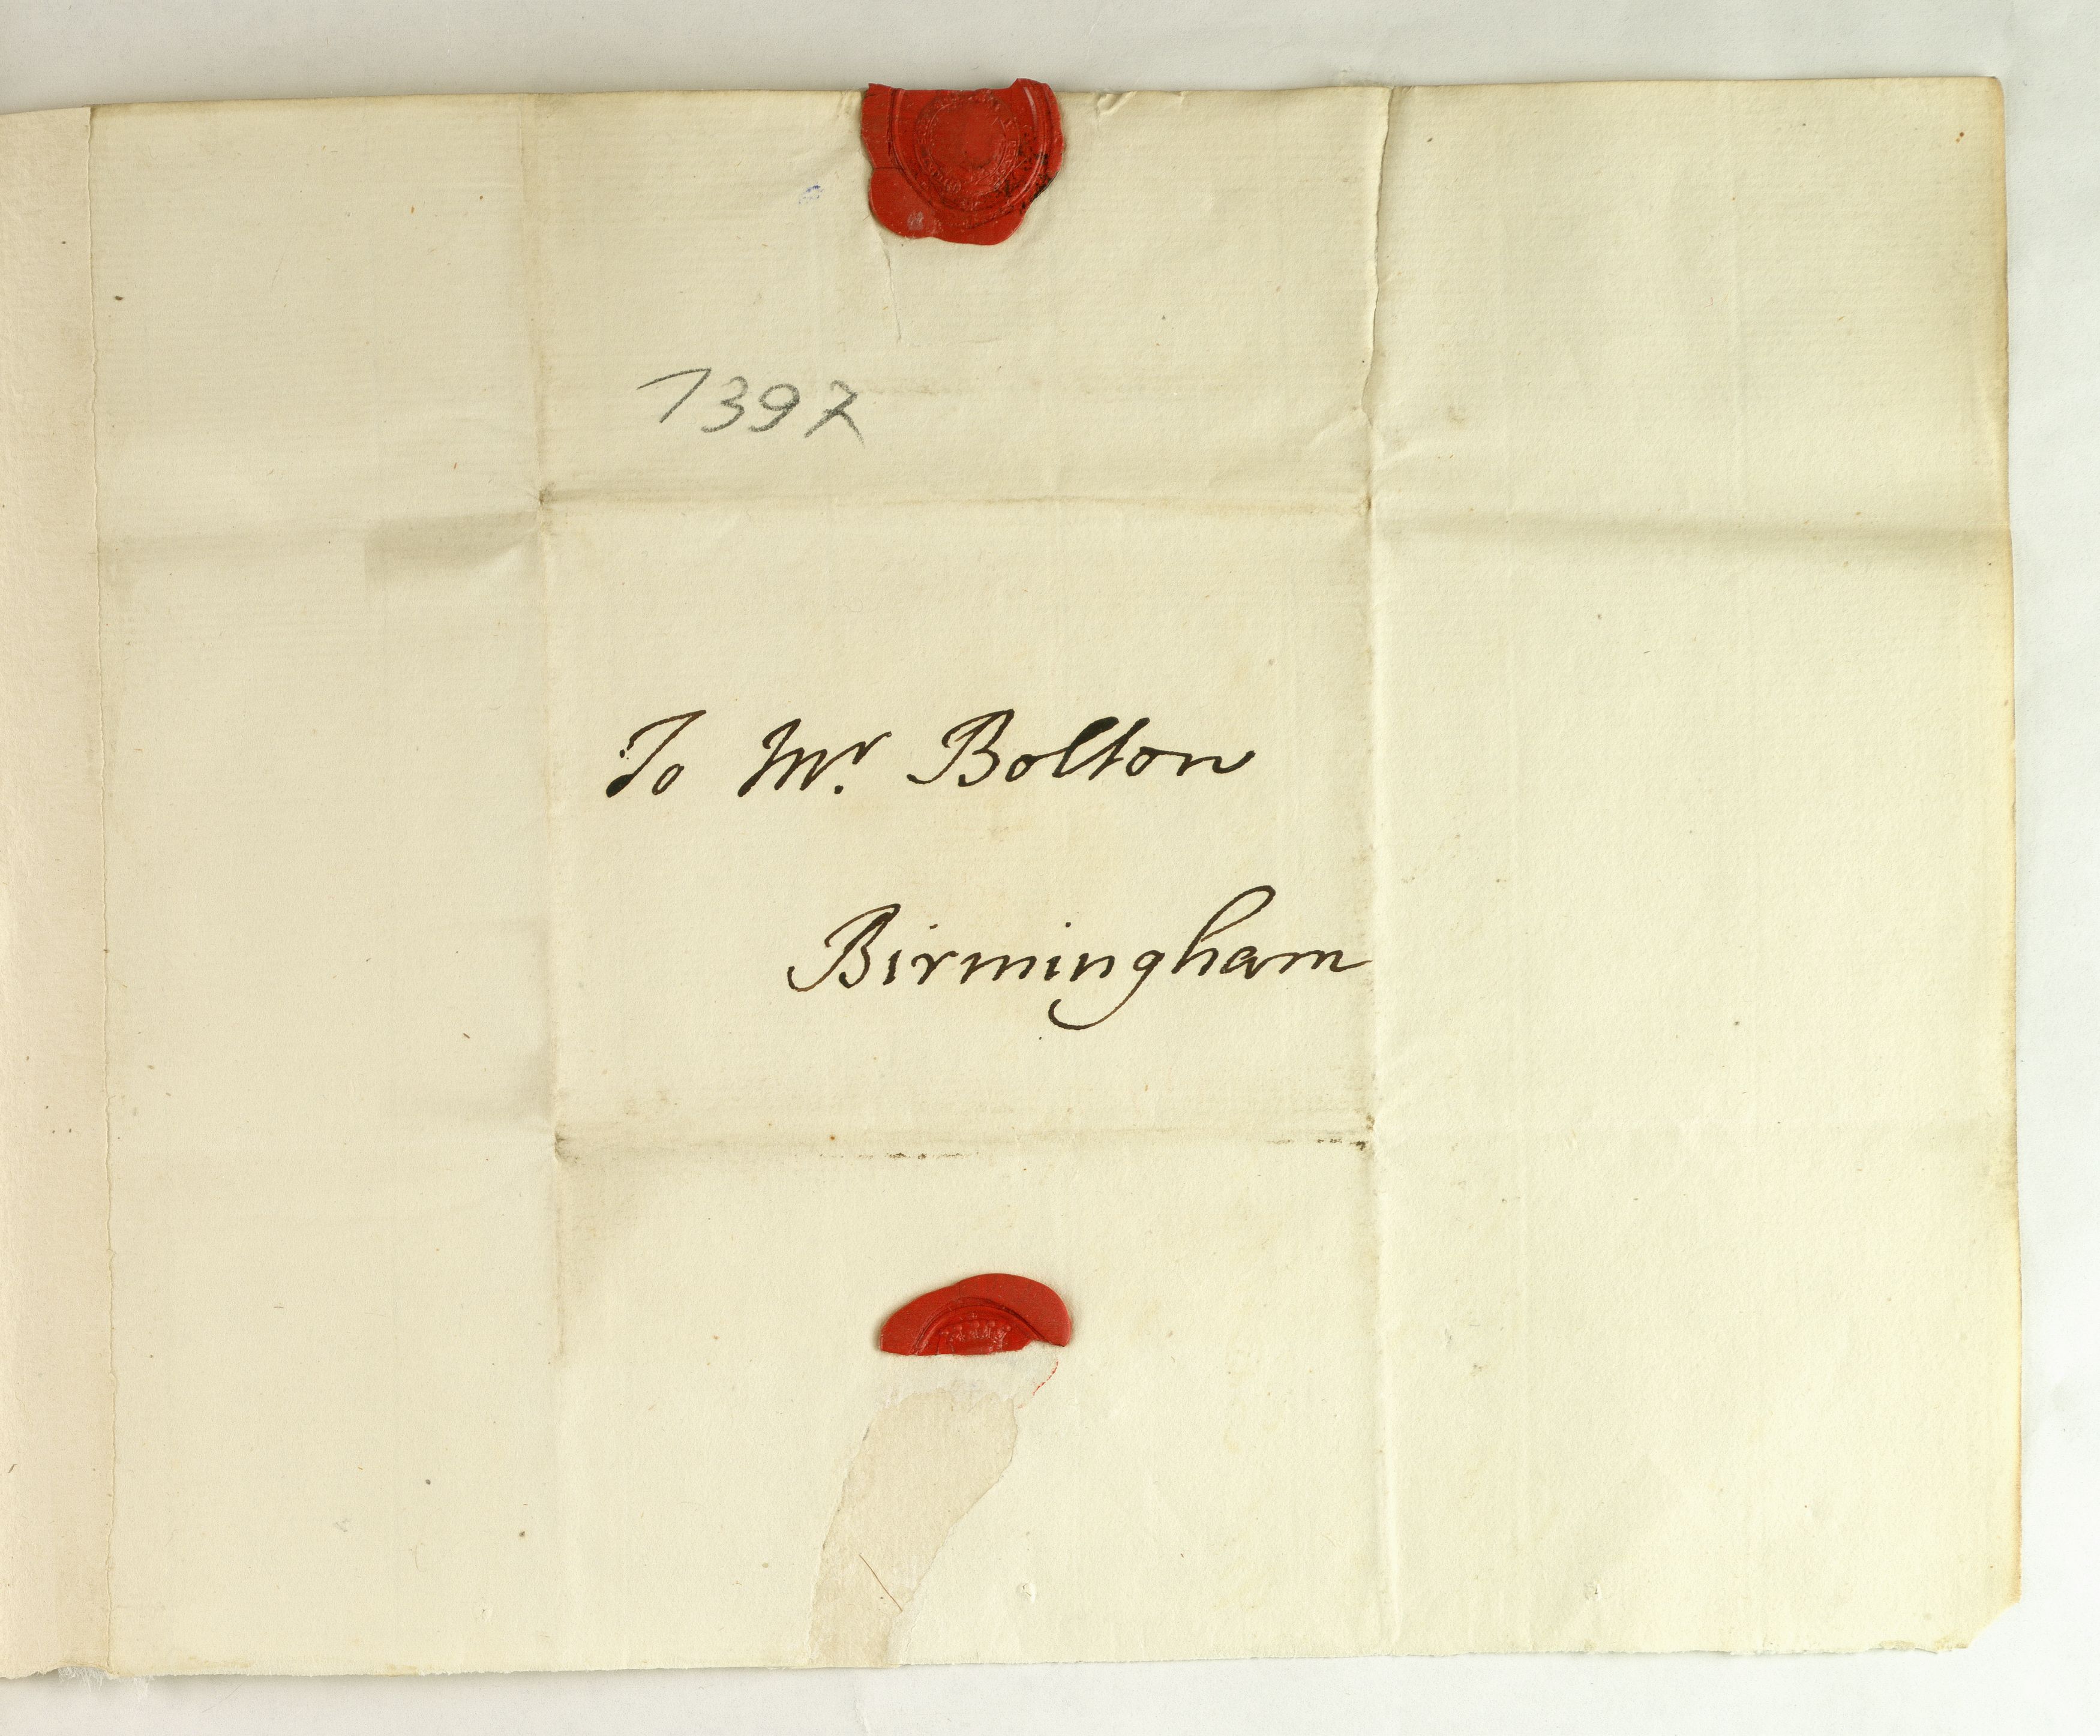 1397
To Mr. Bolton
Birmingham